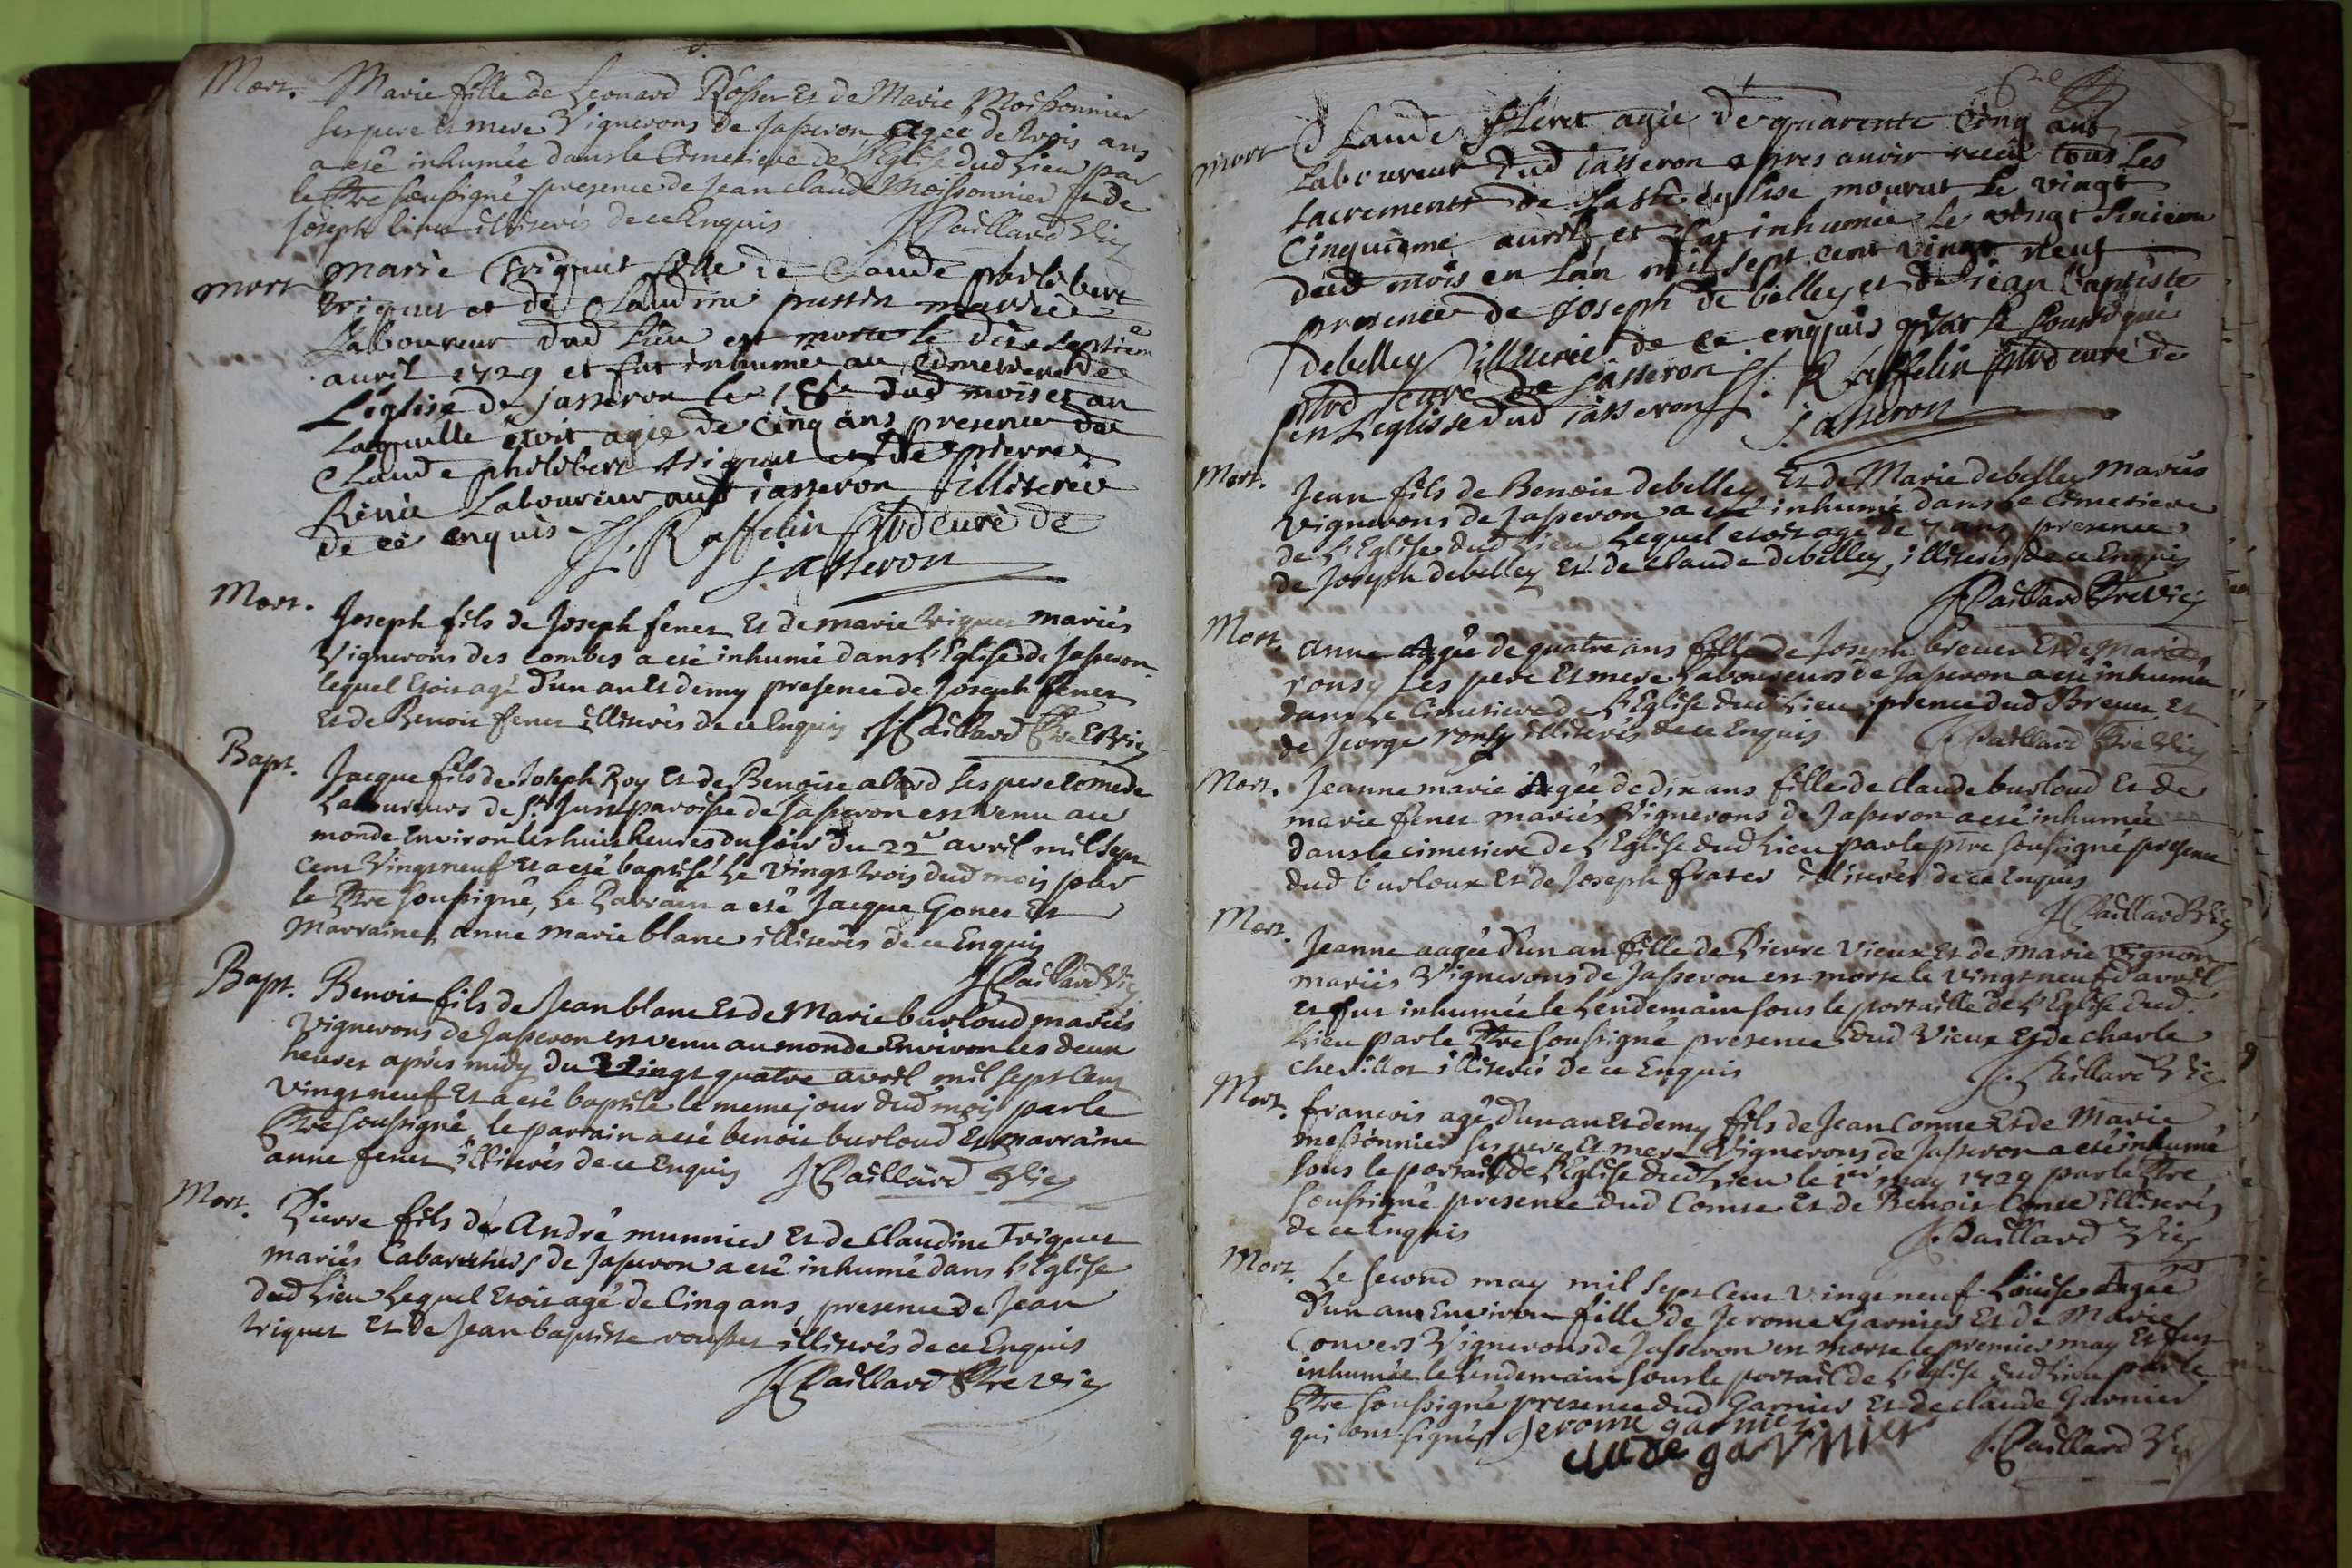 Mort. Marie fille de Leonard Rosser Et de Marie Moissonnier
ses pere et mere Vignerons de Jasseron, agée de trois ans
a eté inhumée dans le Cimetiere de l'Eglise dud Lieu par
le Ptre soussigné presence de Jean claude Moissonnier Et de
Joseph illiterés de ce Enquis J Paillard Vic
mort Marie Triquet fille de Claude philibert
triquet et de Claudine mariée
Laboureur dud Lieu est morte le dixseptieme
auril 1729 et fut inhumée au Cimetiere de
L'église de Jasseron le 18e dud mois et an
Laquelle étoit agée de cinq ans presence de
Claude philibert triquet et de pierre
Laboureur aud jasseron illiterée
de ce enquis J. Raffelin Ptre curé de
jasseron
Mort. Joseph fils de Joseph fenet Et de marie triquet mariés
Vignerons des Combes a eté inhumé dans l'Eglise de Jasseron
lequel Etoit agé d'un an Et demy presence de Joseph fenet
Et de Benoit fenet illiterés de ce Enquis J Paillard Ptre Et Vic
Bapt. Jacque fils de Joseph Roy Et de Benoite alard ses pere et mere
Laboureurs de St. Just paroisse de Jasseron est venu au
monde Environ les huit heures du soir du 22e avril mil sept
cent Vingt neuf Et a eté baptisé Le vingt trois dud mois par
le Ptre soussigné, Le Parrain a eté Jacque Gonet Et
Marraine anne marie blanc illiterés de ce Enquis
J Paillard Vic
Bapt. Benoit fils de Jean blanc Et de Marie burloud mariés
Vignerons de Jasseron est venu au monde Environ les deux
heures après midy du Vingt quatre avril mil sept Cent
vingt neuf Et a eté baptisé le meme jour dud mois par le
Ptre soussigné le parrain a eté benoit burloud Et marraine
anne fenet illiterés de ce Enquis J Paillard Vic
Mort. Pierre fils de André munnier Et de Claudine Triquet
mariés Cabaretiers de Jasseron a eté inhumé dans l'Eglise
dud Lieu Lequel Etoit agé de Cinq ans, presence de Jean
triquet Et de Jean baptiste rousset illiterés de ce Enquis
J Paillard Ptre Vic
mort Claude agée de quarente Cinq ans
Laboureur dud jasseron apres auoir receu tous Les
sacrements de La Ste église mourut Le vingt
Cinquieme auril et fut inhumée Le vingt
dud mois en Lan mil sept cent vingt neuf
presence de joseph de belley et de jean baptiste
debelley illiterés de ce enquis par Le soussigné
ptre curé de jasseron J. Raffelin ptre curé de
en L'eglisse dud jasseron jasseron
Mort. Jean fils de Benoit debelley Et de Marie debelley mariés
vignerons de Jasseron a eté inhumé dans Le Cimetiere
de L'Eglise dud Lieu Lequel etoit agé de 7 ans, presence
de Joseph debelley Et de Claude debelley, illiterés de ce Enquis
J Paillard Ptre Vic
Mort. Anne Agée de quatre ans fille de Joseph brevet Et de Marie
ronsy ses pere Et mere Laboureurs de Jasseron a eté inhumée
dans le Cimetiere de L'Eglise dud Lieu presence dud Brevet Et
de Jeorge ronsy illiterés de ce Enquis J. Paillard Ptre Vic
Mort. Jeanne marie Agée de dix ans fille de Claude burloud Et de
marie fenet mariés Vignerons de Jasseron a eté inhumée
dans le cimetiere de l'Eglise dud Lieu par le ptre soussigné presence
dud burloux Et de Joseph frater illiterés de ce Enquis
J Paillard Vic
Mort. Jeanne aagée d'un an fille de Pierre Vieux Et de marie vignon
mariés Vignerons de Jasseron est morte le vingt neuf d'avril
et fut inhumée le Lendemain sous le portaille de L'Eglise dud.
Lieu par le Ptre soussigné presence dud Vieux Et de charle
chevillot illiterés de ce Enquis J. Paillard Vic
Mort. francois agé d'un an Et demy fils de Jean Comte Et de Marie
messonnier ses pere Et mere Vignerons de Jasseron a eté inhumé
sous le portail de L'Eglise dud Lieu le 1er may 1729 par le Ptre
soussigné presence dud Comte Et de Benoit Comte illiterés
de ce Enquis J. Paillard Vic
Mort. Le second may mil sept Cent vingt neuf Loüise Agée
d'un an Environ fille de Jerome Garnier Et de Marie
Convert Vignerons de Jasseron est morte le premier may Et fut
inhumée le Lendemain sous le portail de L'Eglise dud Lieu par le
Ptre soussigné presence dud Garnier Et de claude Garnier
qui ont signés Jerome garnier
claude garnier J. Paillard Vic